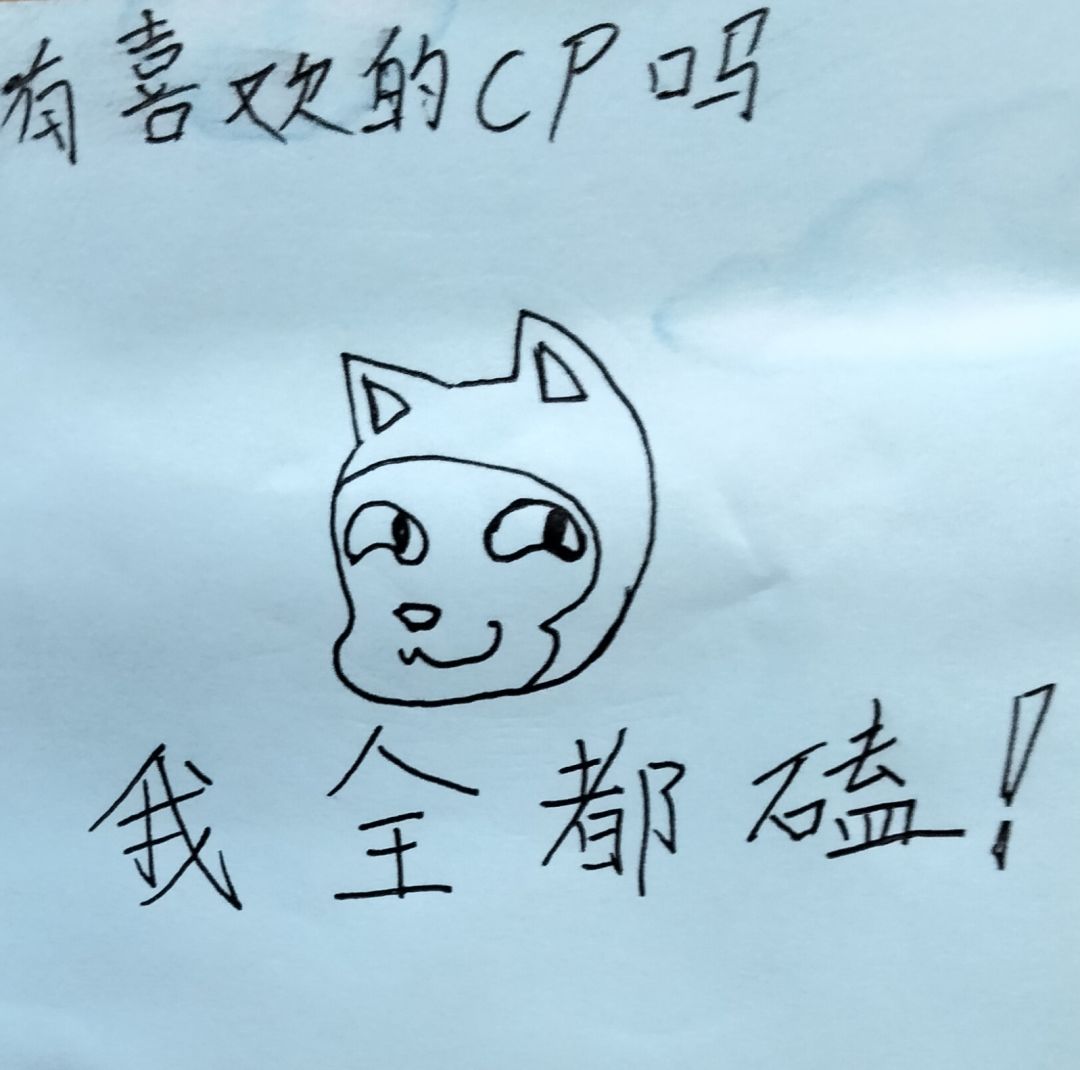 有喜欢的CP吗
我全都磕!